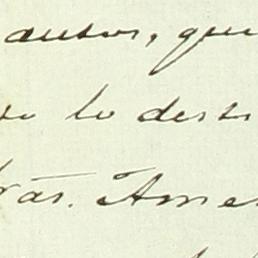 autos, que
lo dest
rás. Ame